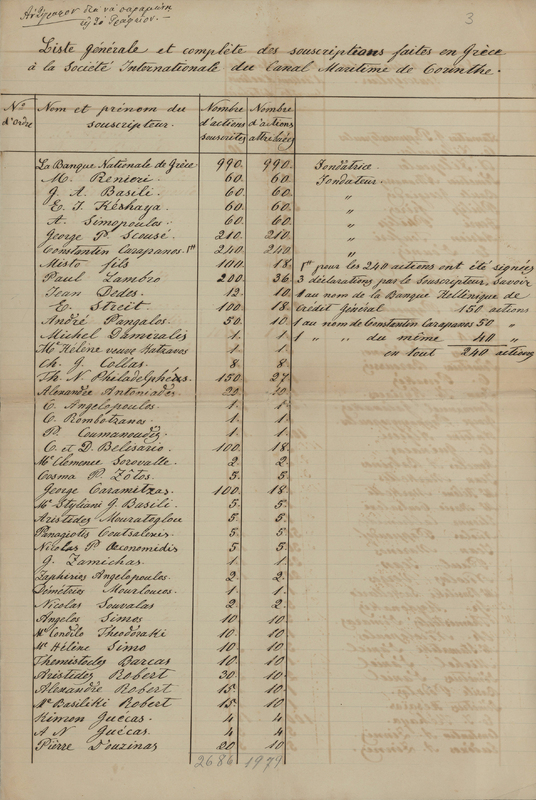 Ἀντίγραφον διὰ νὰ παραμείνῃ
εἰς τὸ Γραφεῖον.
3
Liste générale et complète des souscriptions faites en Grèce
à la Société Internationale du Canal Maritime de Corinthe.
No d'ordre Nom et prénom du souscripteur. Nombre d'actions souscrites Nombre d'actions attribuées
La Banque Nationale de Grèce 990. 990. Fondatrice.
M. Renieri 60. 60. Fondateur.
J. A. Basili. 60. 60. "
E. J. Késhaya. 60. 60. "
A. Simopoulos. 60. 60. "
George P. Scousé. 210. 210. "
Constantin Carapanos. 1) 240. 240. "
Misto fils 100. 18. 1) pour les 240 actions ont été signées
Paul Lambro 200. 36. 3 déclarations par le Souscripteur, Savoir
Jean Dedes. 12. 10. 1 au nom de la Banque Hellénique de
E. Streit. 100. 18. Crédit Général 150 actions
André Pangalos. 50. 10. 1 au nom de Constantin Carapanos 50 "
Michel Damiralis 1. 1. 1 " " du même 40 "
Me Hélène veuve Hatzavos 1. 1. en tout 240 actions
Ch. G. Collas. 8. 8.
Th. N. Philadelphéus. 150. 27.
Alexandre Antoniadès 20. 10.
C. Angelopoulos. 1. 1.
C. Rombotzano. 1. 1.
P. Coumanoudis. 1. 1.
C. et D. Belisario. 100. 18.
Me Clemence Serovalte. 2. 2.
Cosma P. Zôtos. 5. 5.
George Caramitzas. 100. 18.
Me Styliani G. Basili. 5. 5.
Aristides Mouratoglou 5. 5.
Panagiotes Coutsaleris. 5. 5.
Nicolas P. Œconomidis 5. 5.
G. Zamichas. 1. 1.
Zaphirios Angelopoulos. 2. 2.
Démétrios Mourloucos. 1. 1.
Nicolas Souvalas 2. 2.
Angelos Simos 10. 10.
Me Condilo Theodoraki 10. 10.
Me Hélène Simo 10. 10.
Themistocles Barcas 10. 10.
Aristides Robert 30. 10.
Alexandre Robert 15. 10.
Me Basiliki Robert 15. 10.
Kimon Guécas. 4. 4.
A N Guécas. 4. 4.
Pierre D'ouzinas 20. 10.
2686 1979